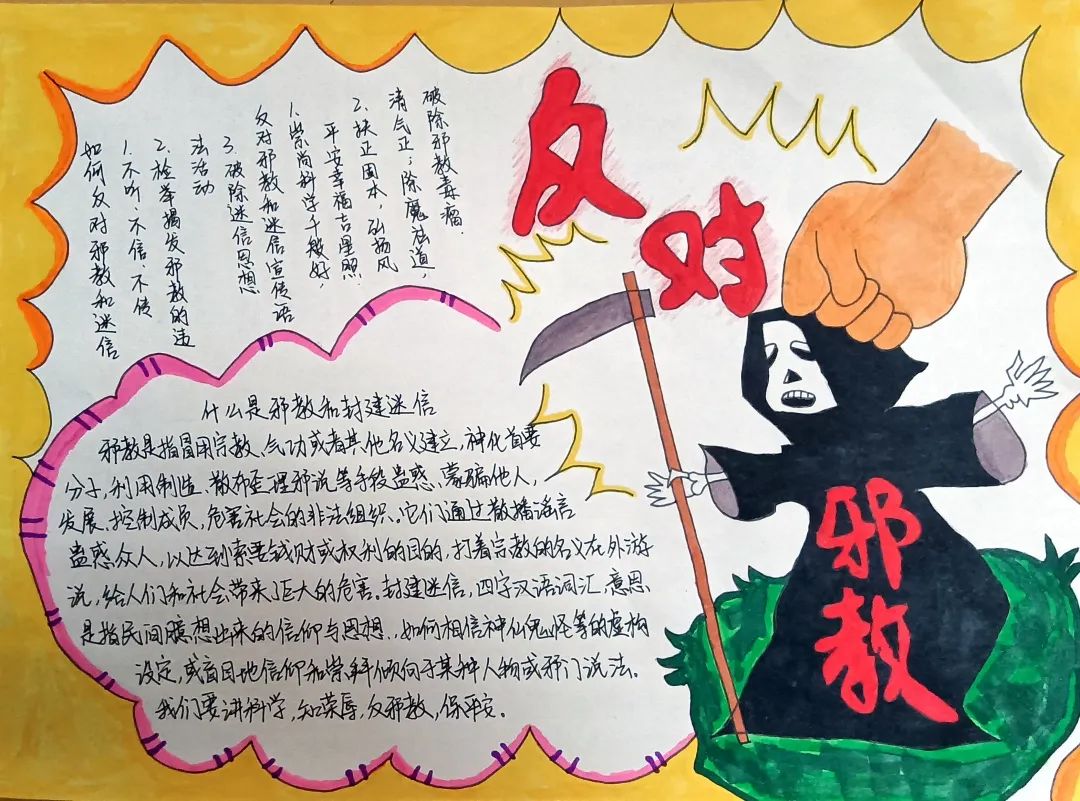 反对
邪教
如何反对邪教和迷信
1.不听、不信、不传
2.检举揭发邪教的违
法活动
3.破除迷信思想
反对邪教和迷信宣传语
1.崇尚科学千般好,
平安幸福吉星照.
2、扶正固本,弘扬风
清气正;除魔祛道,
破除邪教毒瘤.
什么是邪教和封建迷信
邪教是指冒用宗教、气功或者其他名义建立,神化首要
分子,利用制造、散布歪理邪说等手段蛊惑、蒙骗他人,
发展、控制成员,危害社会的非法组织。它们通过散播谣言
蛊惑众人,以达到索要钱财或权利的目的,打着宗教的名义在外游
说,给人们和社会带来了巨大的危害。封建迷信,四字汉语词汇,意思
是指民间臆想出来的信仰与思想.,如何相信神仙鬼怪等的虚构
设定,或盲目地信仰和崇拜倾向于某种人物或邪门说法.
我们要讲科学,知荣辱,反邪教,保平安。